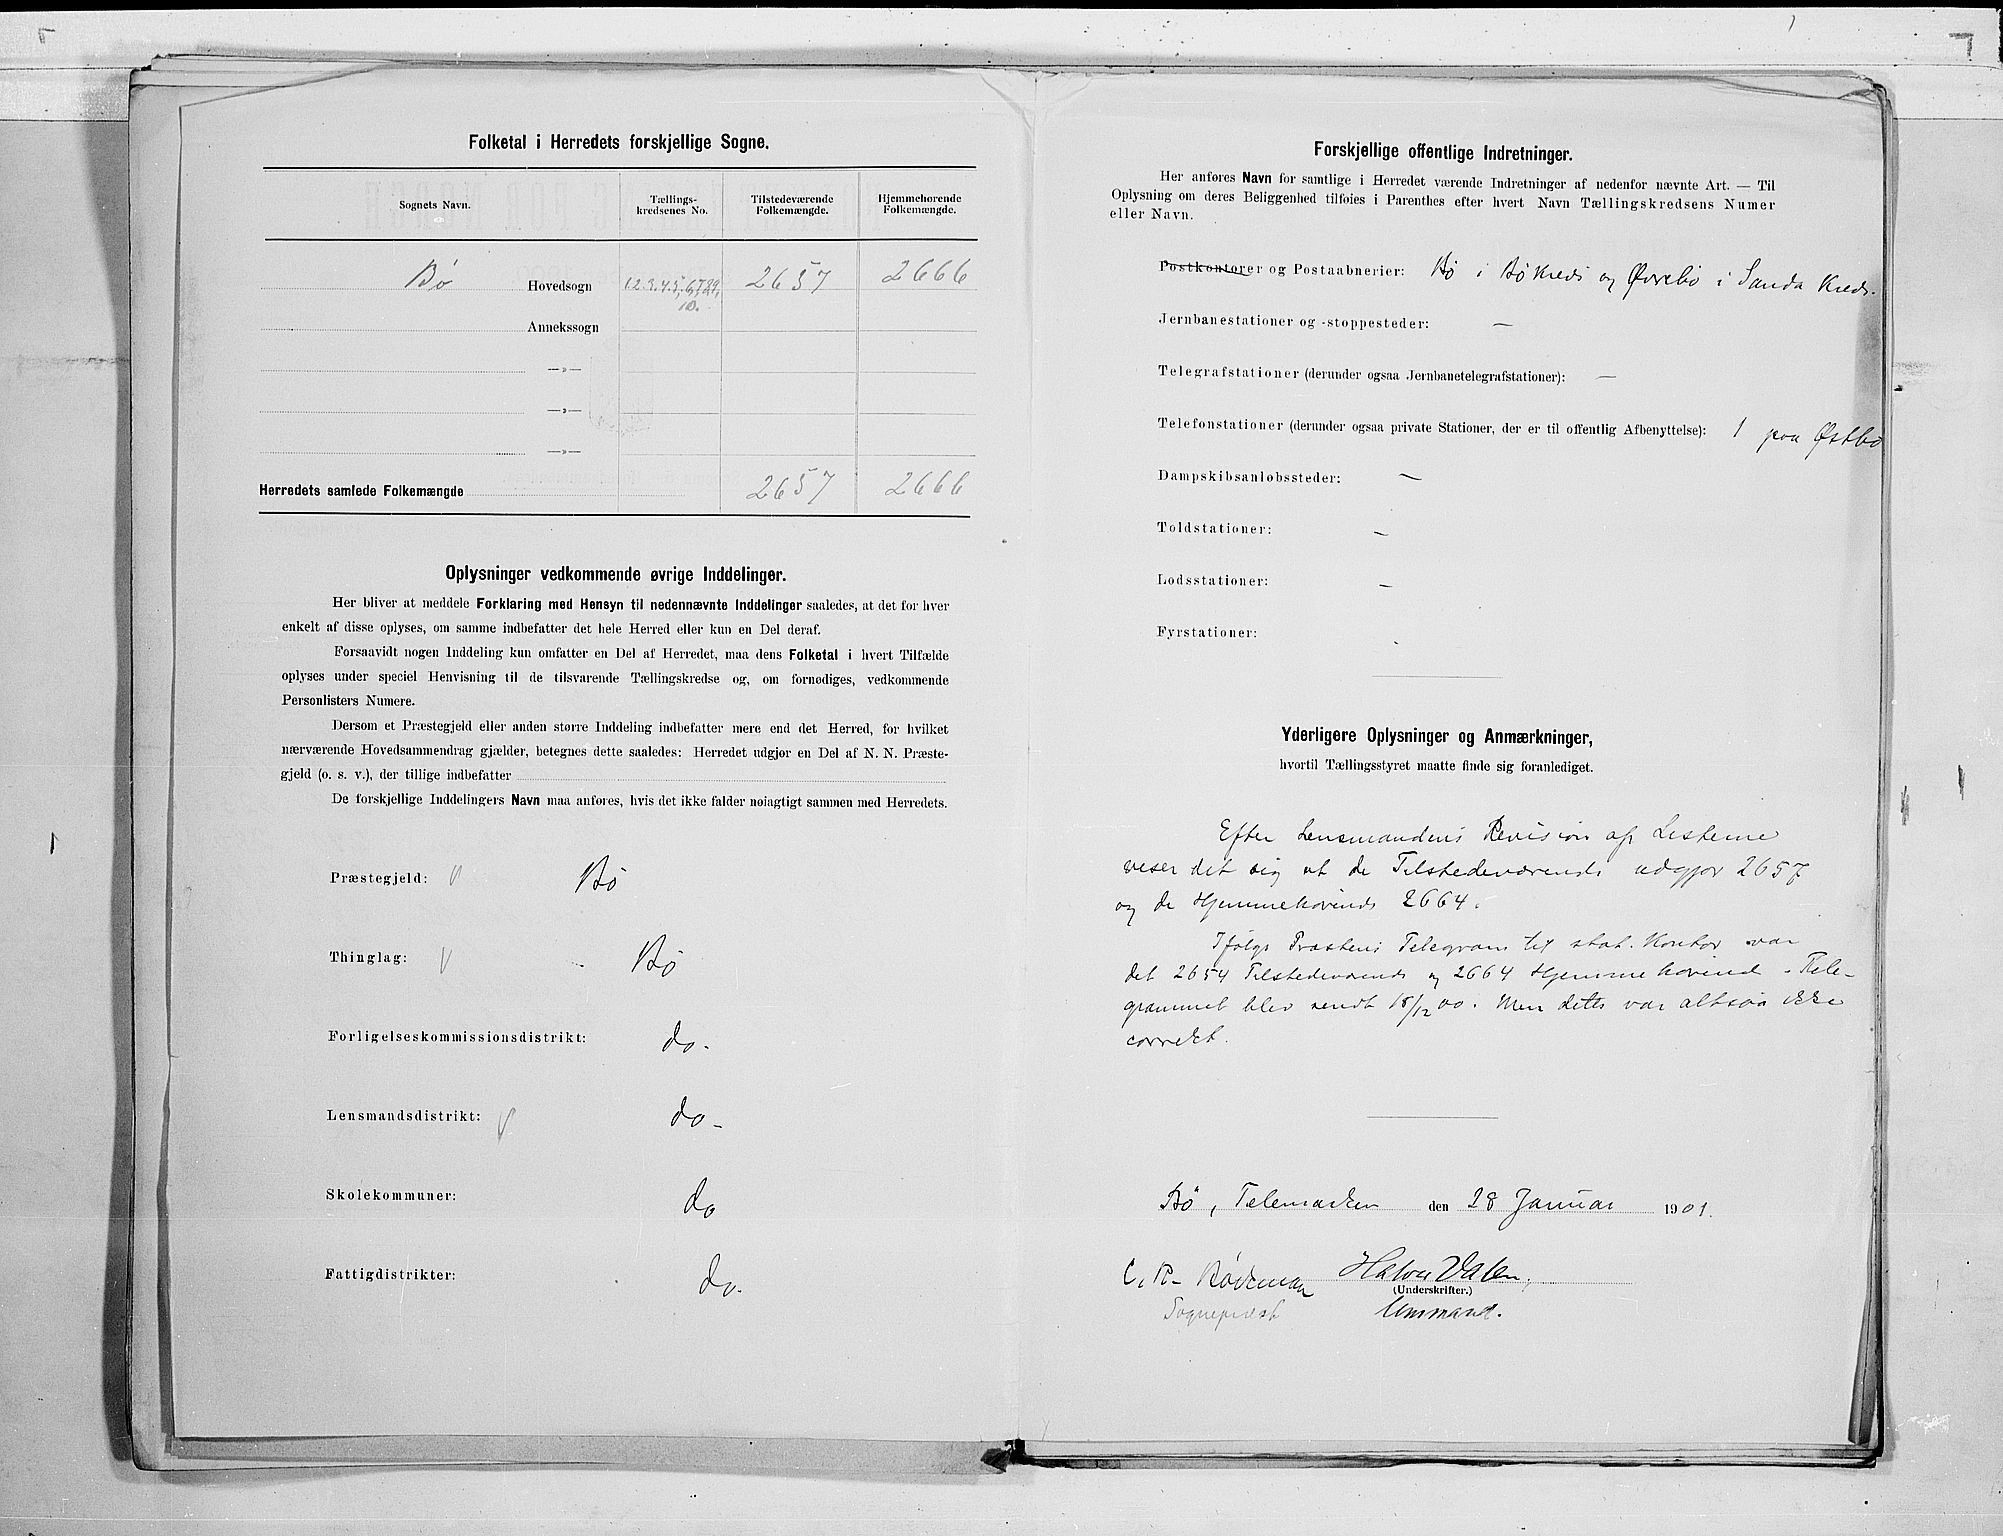 Folketal i Herredets forskjellige Sogne.
Sognets Navn. Tællings-kredsenes No. Tilstedeværende Folkemængde. Hjemmehørende Folkemængde.
Bø Hovedsogn 1.2.3.4.5,6,7,8,9, 10. 2657 2666
Annekssogn
—»—
—»—
—»—
Herredets samlede Folkemængde 2657 2666
Oplysninger vedkommende øvrige Inddelinger.
Her bliver at meddele Forklaring med Hensyn til nedennævnte Inddelinger saaledes, at det for hver
enkelt af disse oplyses, om samme indbefatter det hele Herred eller kun en Del deraf.
Forsaavidt nogen Inddeling kun omfatter en Del af Herredet, maa dens Folketal i hvert Tilfælde
oplyses under speciel Henvisning til de tilsvarende Tællingskredse og, om fornødiges, vedkommende
Personlisters Numere.
Dersom et Præstegjeld eller anden større Inddeling indbefatter mere end det Herred, for hvilket
nærværende Hovedsammendrag gjælder, betegnes dette saaledes: Herredet udgjør en Del af N. N. Præste-
gjeld (o. s. v.), der tillige indbefatter
De forskjellige Inddelingers Navn maa anføres, hvis det ikke falder nøiagtigt sammen med Herredets.
Præstegjeld: Bø
Thinglag: Bø
Forligelseskommissionsdistrikt: do.
Lensmandsdistrikt: do
Skolekommuner: do
Fattigdistrikter: do.
Forskjellige offentlige Indretninger.
Her anføres Navn for samtlige i Herredet værende Indretninger af nedenfor nævnte Art. — Til
Oplysning om deres Beliggenhed tilføies i Parenthes efter hvert Navn Tællingskredsens Numer
eller Navn.
Postkontorer og Postaabnerier: Bø i Bø Kreds og Øvrebø i Sanda Kreds.
Jernbanestationer og -stoppesteder: —
Telegrafstationer (derunder ogsaa Jernbanetelegrafstationer): —
Telefonstationer (derunder ogsaa private Stationer, der er til offentlig Afbenyttelse): 1 paa Østbø
Dampskibsanløbssteder: —
Toldstationer: —
Lodsstationer: —
Fyrstationer:
Yderligere Oplysninger og Anmærkninger,
hvortil Tællingsstyret maatte finde sig foranlediget.
Efter Lensmandens Revision af Listerne
viser det sig at de Tilstedeværende udgjør 2657
og de Hjemmehørende 2664.
Ifølge Præstens Telegram til stat. Kontor var
det 2654 Tilstedeværende og 2664 Hjemmehørende. Tele-
grammet blev sendt 18/12 00. Men dette var altsaa ikke
correkt.
Bø, Telemarken den 28 Januar 1901.
C. R. Bødtman Halvor Valen,
(Underskrifter.)
Sogneprest Lensmand.